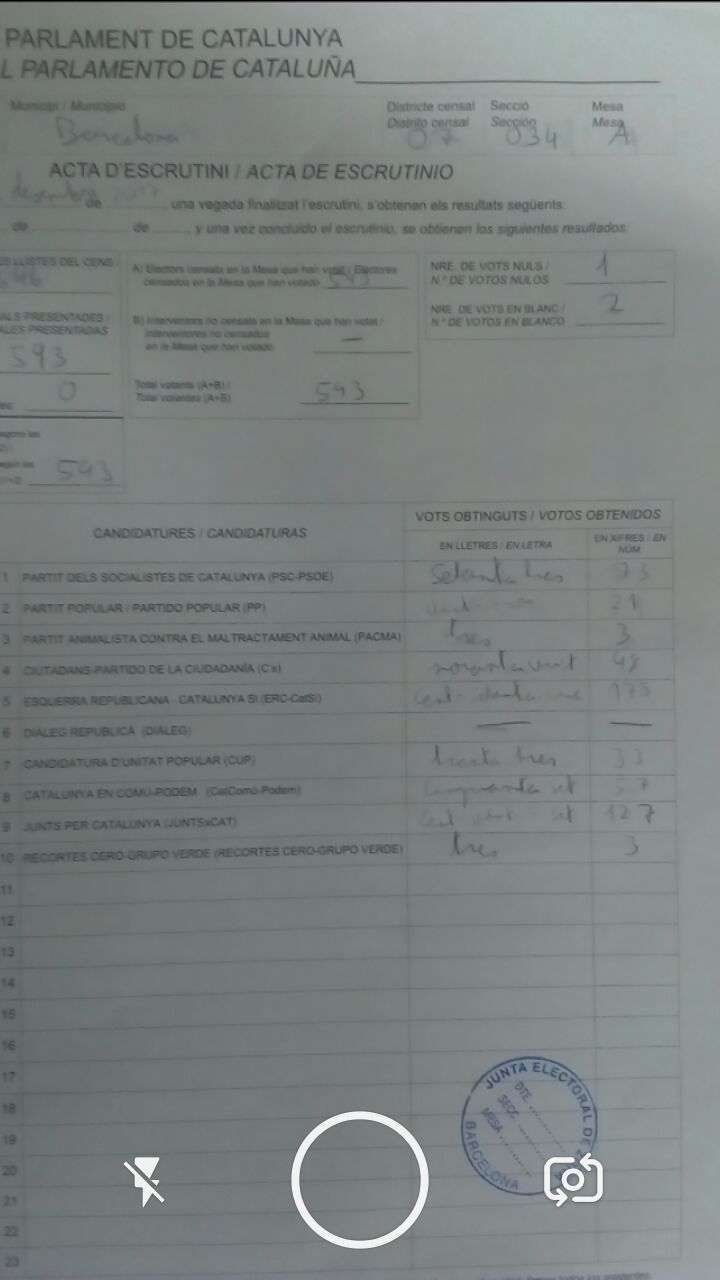 PARLAMENT DE CATALUNYA
L PARLAMENTO DE CATALUÑA
Municipi / Municipio
Barcelona
Districte censal
Distrito censal
07
Secció
Sección
034
Mesa
Mesa
A
ACTA D'ESCRUTINI / ACTA DE ESCRUTINIO
desembre de 2017, una vegada finalitzat l'escrutini, s'obtenen els resultats següents:
de de , y una vez concluido el escrutinio, se obtienen los siguientes resultados:
ES LLISTES DEL CENS /
ALS PRESENTADES /
ALES PRESENTADAS
593
0
593
A) Electors censats en la Mesa que han votat / Electores
censados en la Mesa que han votado 593
B) Interventors no censats en la Mesa que han votat /
Interventores no censados
en la Mesa que han votado —
Total votants (A+B) /
Total votantes (A+B) 593
NRE. DE VOTS NULS /
N.º DE VOTOS NULOS 1
NRE. DE VOTS EN BLANC /
N.º DE VOTOS EN BLANCO 2
CANDIDATURES / CANDIDATURAS
VOTS OBTINGUTS / VOTOS OBTENIDOS
EN LLETRES / EN LETRA
EN XIFRES / EN
NÚM.
1 PARTIT DELS SOCIALISTES DE CATALUNYA (PSC-PSOE) Setanta tres 73
2 PARTIT POPULAR / PARTIDO POPULAR (PP) 21
3 PARTIT ANIMALISTA CONTRA EL MALTRACTAMENT ANIMAL (PACMA) tres 3
4 CIUTADANS-PARTIDO DE LA CIUDADANÍA (C's)
5 ESQUERRA REPUBLICANA - CATALUNYA SÍ (ERC-CatSí)
6 DIÀLEG REPUBLICÀ (DIÀLEG) — —
7 CANDIDATURA D'UNITAT POPULAR (CUP) trenta tres 33
8 CATALUNYA EN COMÚ-PODEM (CatComú-Podem) cinquanta set 57
9 JUNTS PER CATALUNYA (JUNTSxCAT) Cent vint-set 127
10 RECORTES CERO-GRUPO VERDE (RECORTES CERO-GRUPO VERDE) tres 3
11
12
13
14
15
16
17
18
19
20
21
22
23
JUNTA ELECTORAL DE
BARCELONA
DTE.
SECC.
MESA